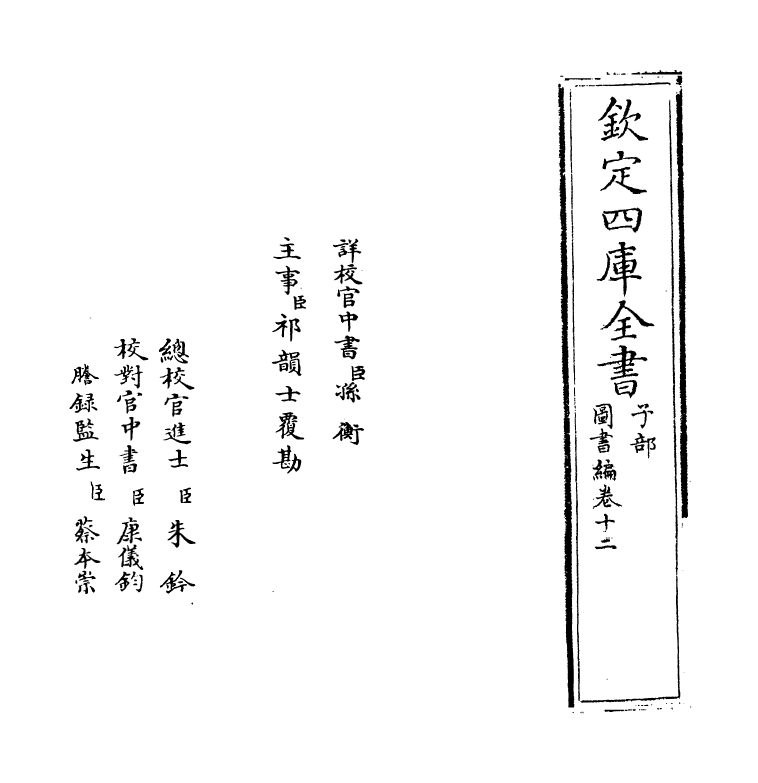 欽定四庫全書
子部
圖書編卷十二
詳校官中書臣孫衡
主事臣祁韻士覆勘
總校官進士臣朱鈐
校對官中書臣康儀鈞
謄録監生臣蔡本崇